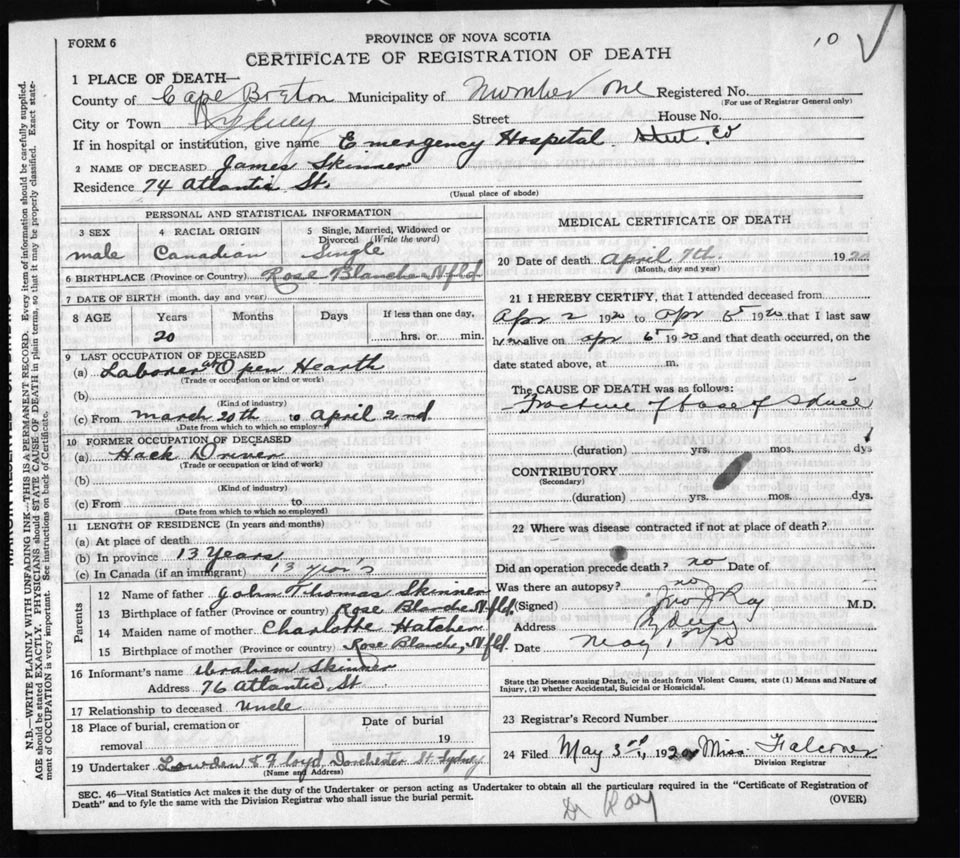 10
FORM 6
PROVINCE OF NOVA SCOTIA
CERTIFICATE OF REGISTRATION OF DEATH
1 PLACE OF DEATH—
County of Cape Breton Municipality of Number one Registered No.
(For use of Registrar General only)
City or Town Sydney Street House No.
If in hospital or institution, give name Emergency Hospital
2 NAME OF DECEASED James Skinner
Residence 74 Atlantic St.
(Usual place of abode)
PERSONAL AND STATISTICAL INFORMATION
3 SEX 4 RACIAL ORIGIN 5 Single, Married, Widowed or
Divorced (Write the word)
male Canadian Single
6 BIRTHPLACE (Province or Country) Rose Blanche Nfld
7 DATE OF BIRTH (month, day and year)
8 AGE Years Months Days If less than one day,
20 hrs. or min.
9 LAST OCCUPATION OF DECEASED
(a) Laborer at Open Hearth
(Trade or occupation or kind of work)
(b)
(Kind of industry)
(c) From March 20th to April 2nd
(Date from which to which so employed)
10 FORMER OCCUPATION OF DECEASED
(a) Hack Driver
(Trade or occupation or kind of work)
(b)
(Kind of industry)
(c) From to
(Date from which to which so employed)
11 LENGTH OF RESIDENCE (In years and months)
(a) At place of death
(b) In province 13 Years
(c) In Canada (if an immigrant) 13 year's
Parents
12 Name of father John Thomas Skinner
13 Birthplace of father (Province or country) Rose Blanche Nfld.
14 Maiden name of mother Charlotte Hatcher
15 Birthplace of mother (Province or country) Rose Blanche, Nfld.
16 Informant's name Abraham Skinner
Address 76 Atlantic St
17 Relationship to deceased Uncle
18 Place of burial, cremation or Date of burial
removal 19
19 Undertaker Lowden & Floyd, Dorchester St. Sydney
(Name and Address)
MEDICAL CERTIFICATE OF DEATH
20 Date of death April 7th. 1920
(Month, day and year)
21 I HEREBY CERTIFY, that I attended deceased from
Apr 2 1920 to Apr 1920 that I last saw
him alive on apr 1920 and that death occurred, on the
date stated above, at m.
The CAUSE OF DEATH was as follows:
Fracture of base of Skull
(duration) yrs. mos. dys
CONTRIBUTORY
(Secondary)
(duration) yrs. mos. dys.
22 Where was disease contracted if not at place of death?
Did an operation precede death? no Date of
Was there an autopsy? no
(Signed) Jno J Roy M.D.
Address Sydney
Date May 1, 20
State the Disease causing Death, or in death from Violent Causes, state (1) Means and Nature of
Injury, (2) whether Accidental, Suicidal or Homicidal.
23 Registrar's Record Number
24 Filed May 3rd, 1920 Miss Falconer
Division Registrar
SEC. 46—Vital Statistics Act makes it the duty of the Undertaker or person acting as Undertaker to obtain all the particulars required in the "Certificate of Registration of
Death" and to fyle the same with the Division Registrar who shall issue the burial permit. (OVER)
Dr Roy
N.B.—WRITE PLAINLY WITH UNFADING INK—THIS IS A PERMANENT RECORD. Every item of information should be carefully supplied.
AGE should be stated EXACTLY. PHYSICIANS should STATE CAUSE OF DEATH in plain terms, so that it may be properly classified. Exact state-
ment of OCCUPATION is very important. See instructions on back of Certificate.